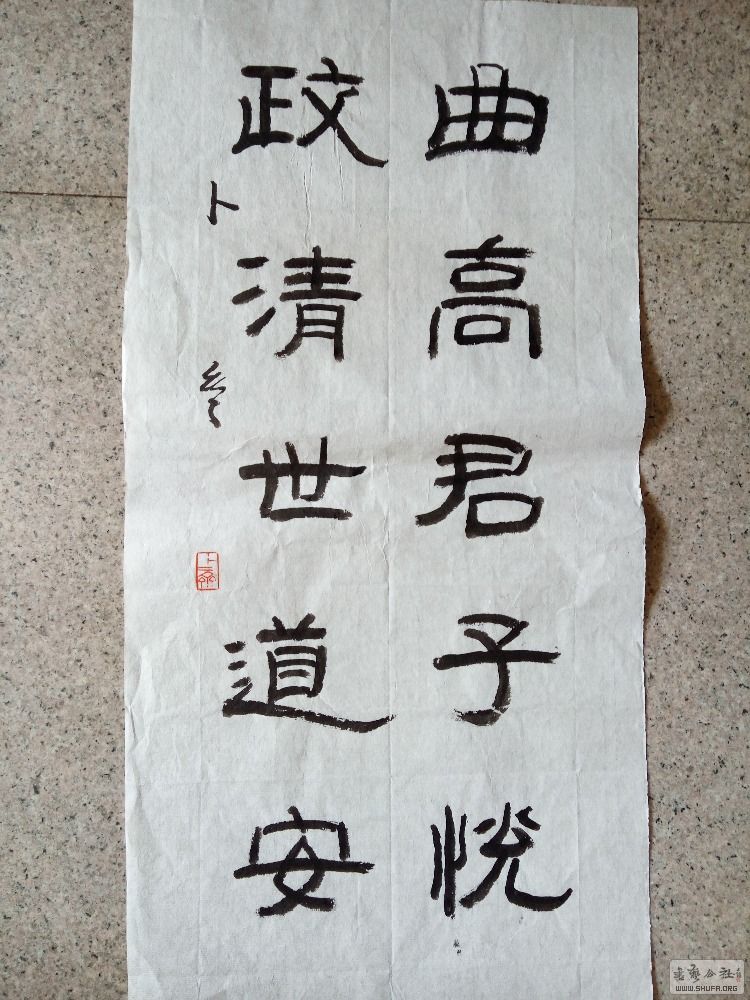 曲高君子悦
政清世道安
卜
WWW.SHUFA.ORG